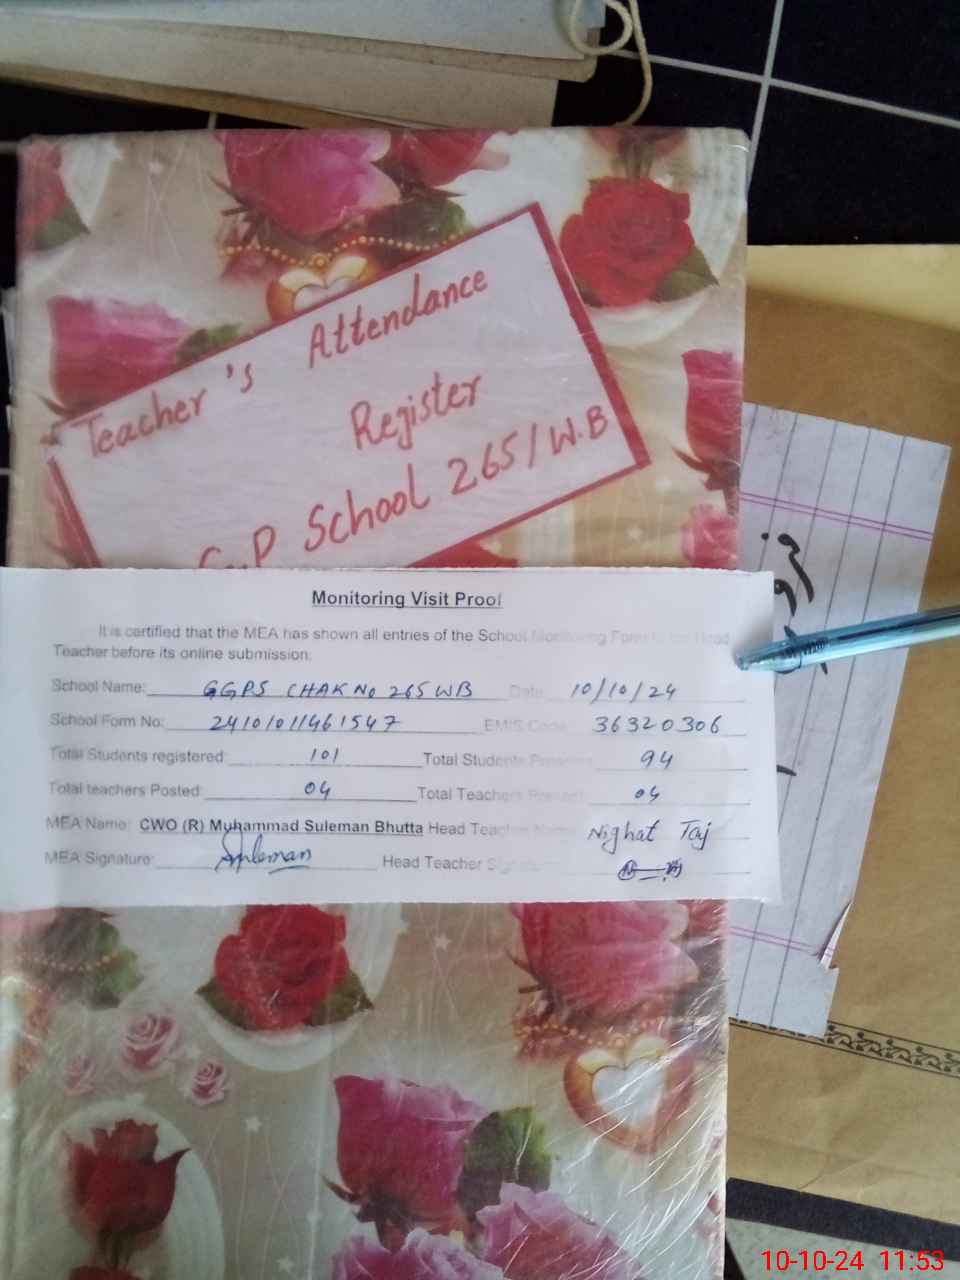 Teacher's Attendance
Register
G.P School 265/W.B
Monitoring Visit Proof
It is certified that the MEA has shown all entries of the School Monitoring Form to the Head
Teacher before its online submission.
School Name: GGPS CHAK No 265 WB Date: 10/10/24
School Form No: 24101011461547 EMIS Code: 36320306
Total Students registered: 101 Total Students Present: 94
Total teachers Posted: 04 Total Teachers Present: 04
MEA Name: CWO (R) Muhammad Suleman Bhutta Head Teacher Name: Nighat Taj
MEA Signature: Suleman Head Teacher Signature:
10-10-24 11:53